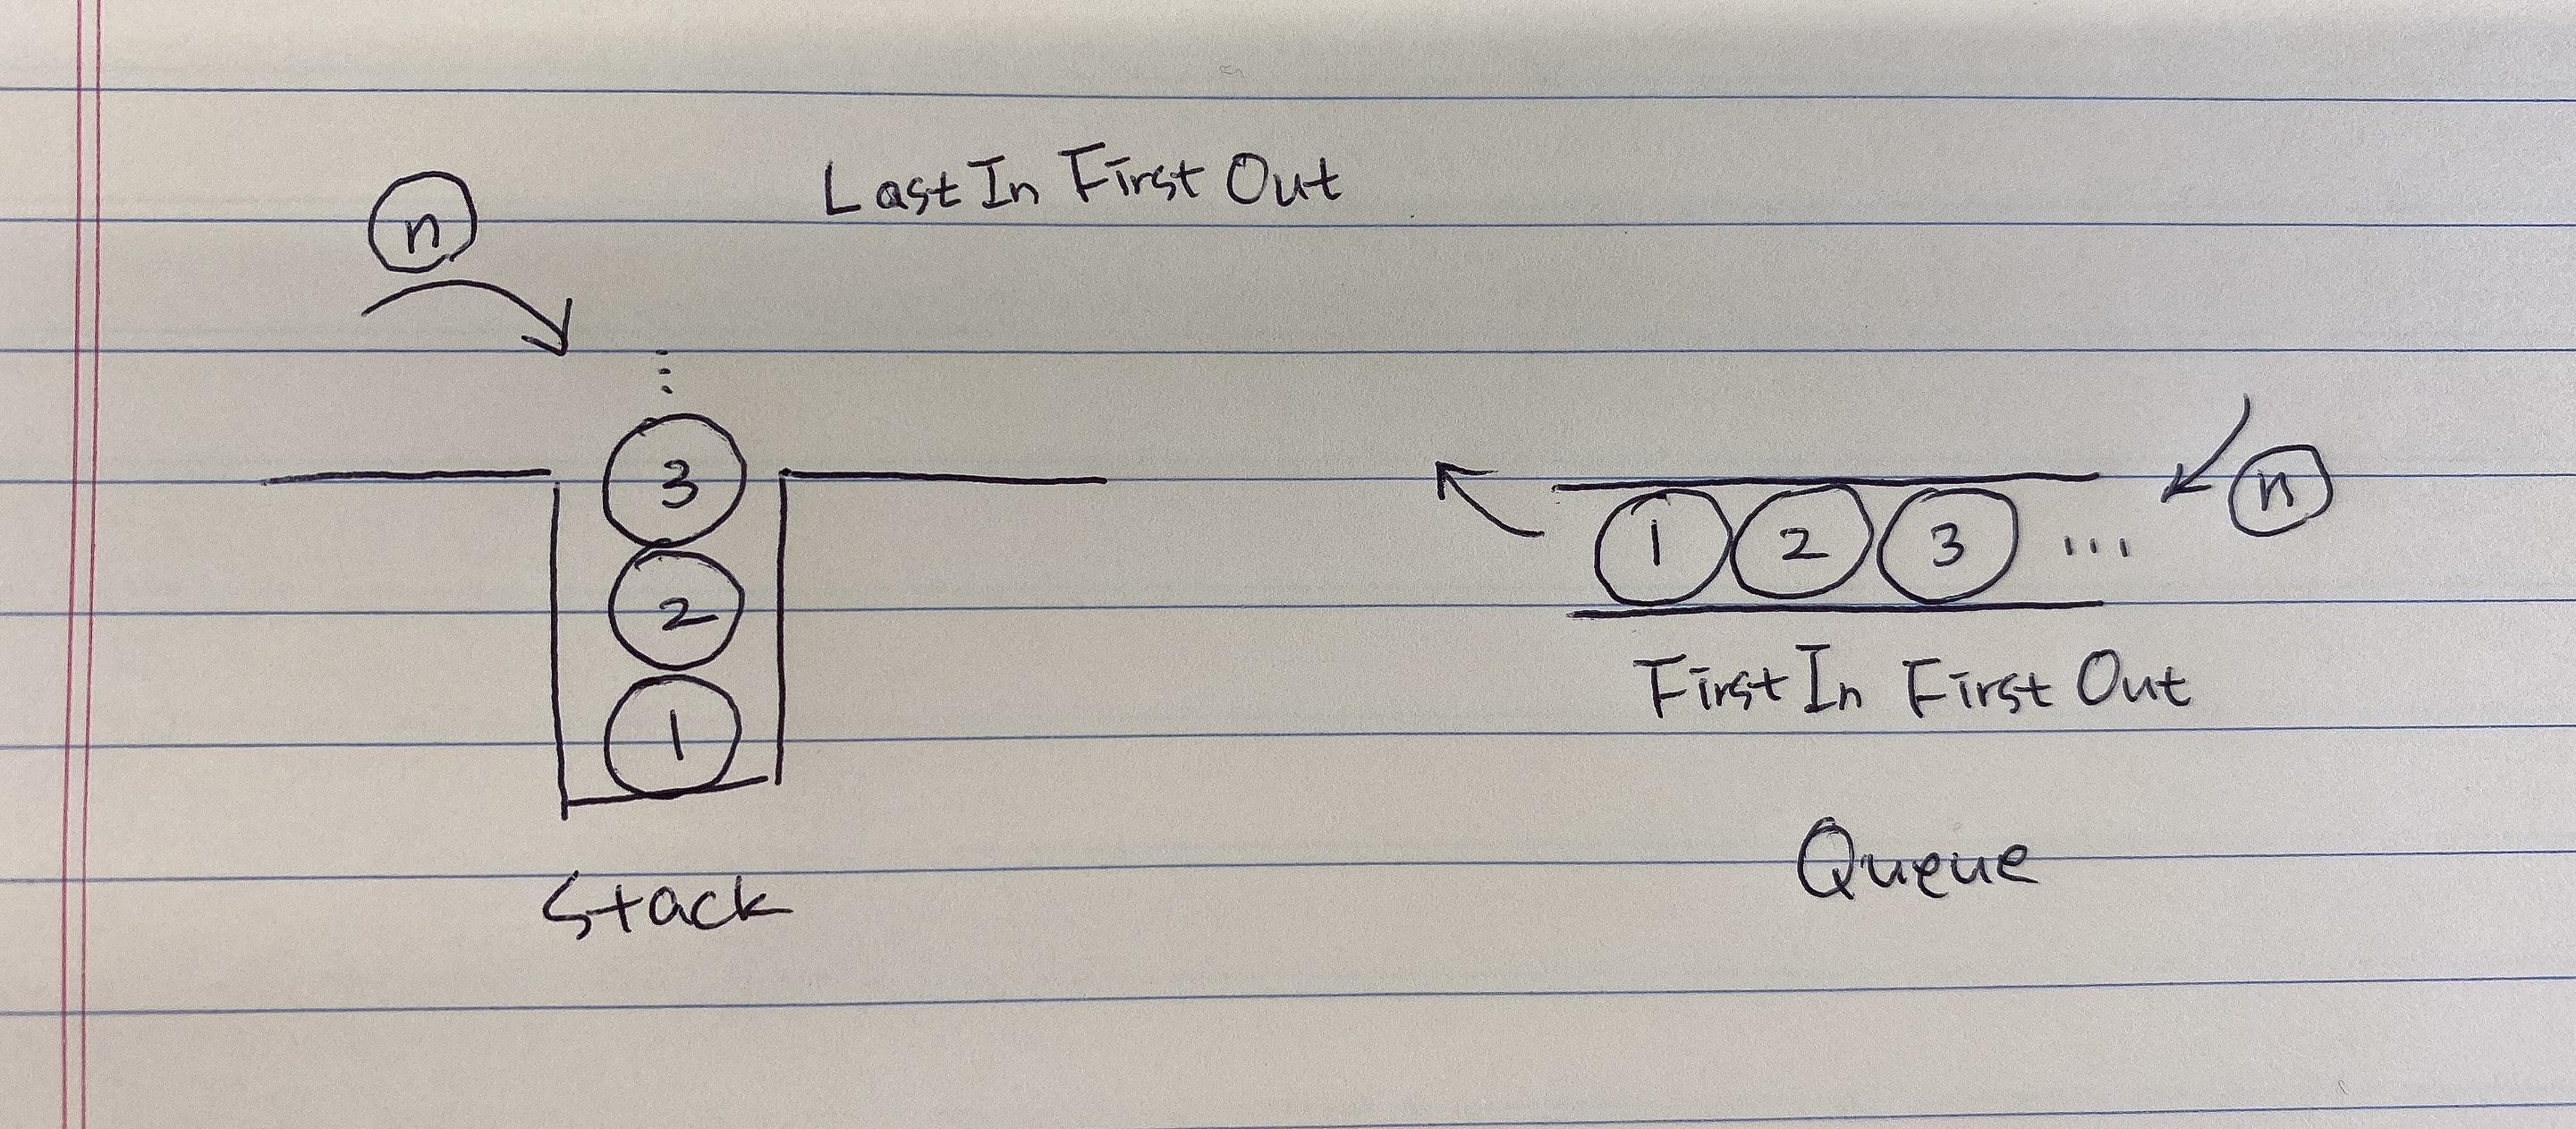 Last In First Out
n
⋮
3
2
1
Stack
1 2 3 ... n
First In First Out
Queue